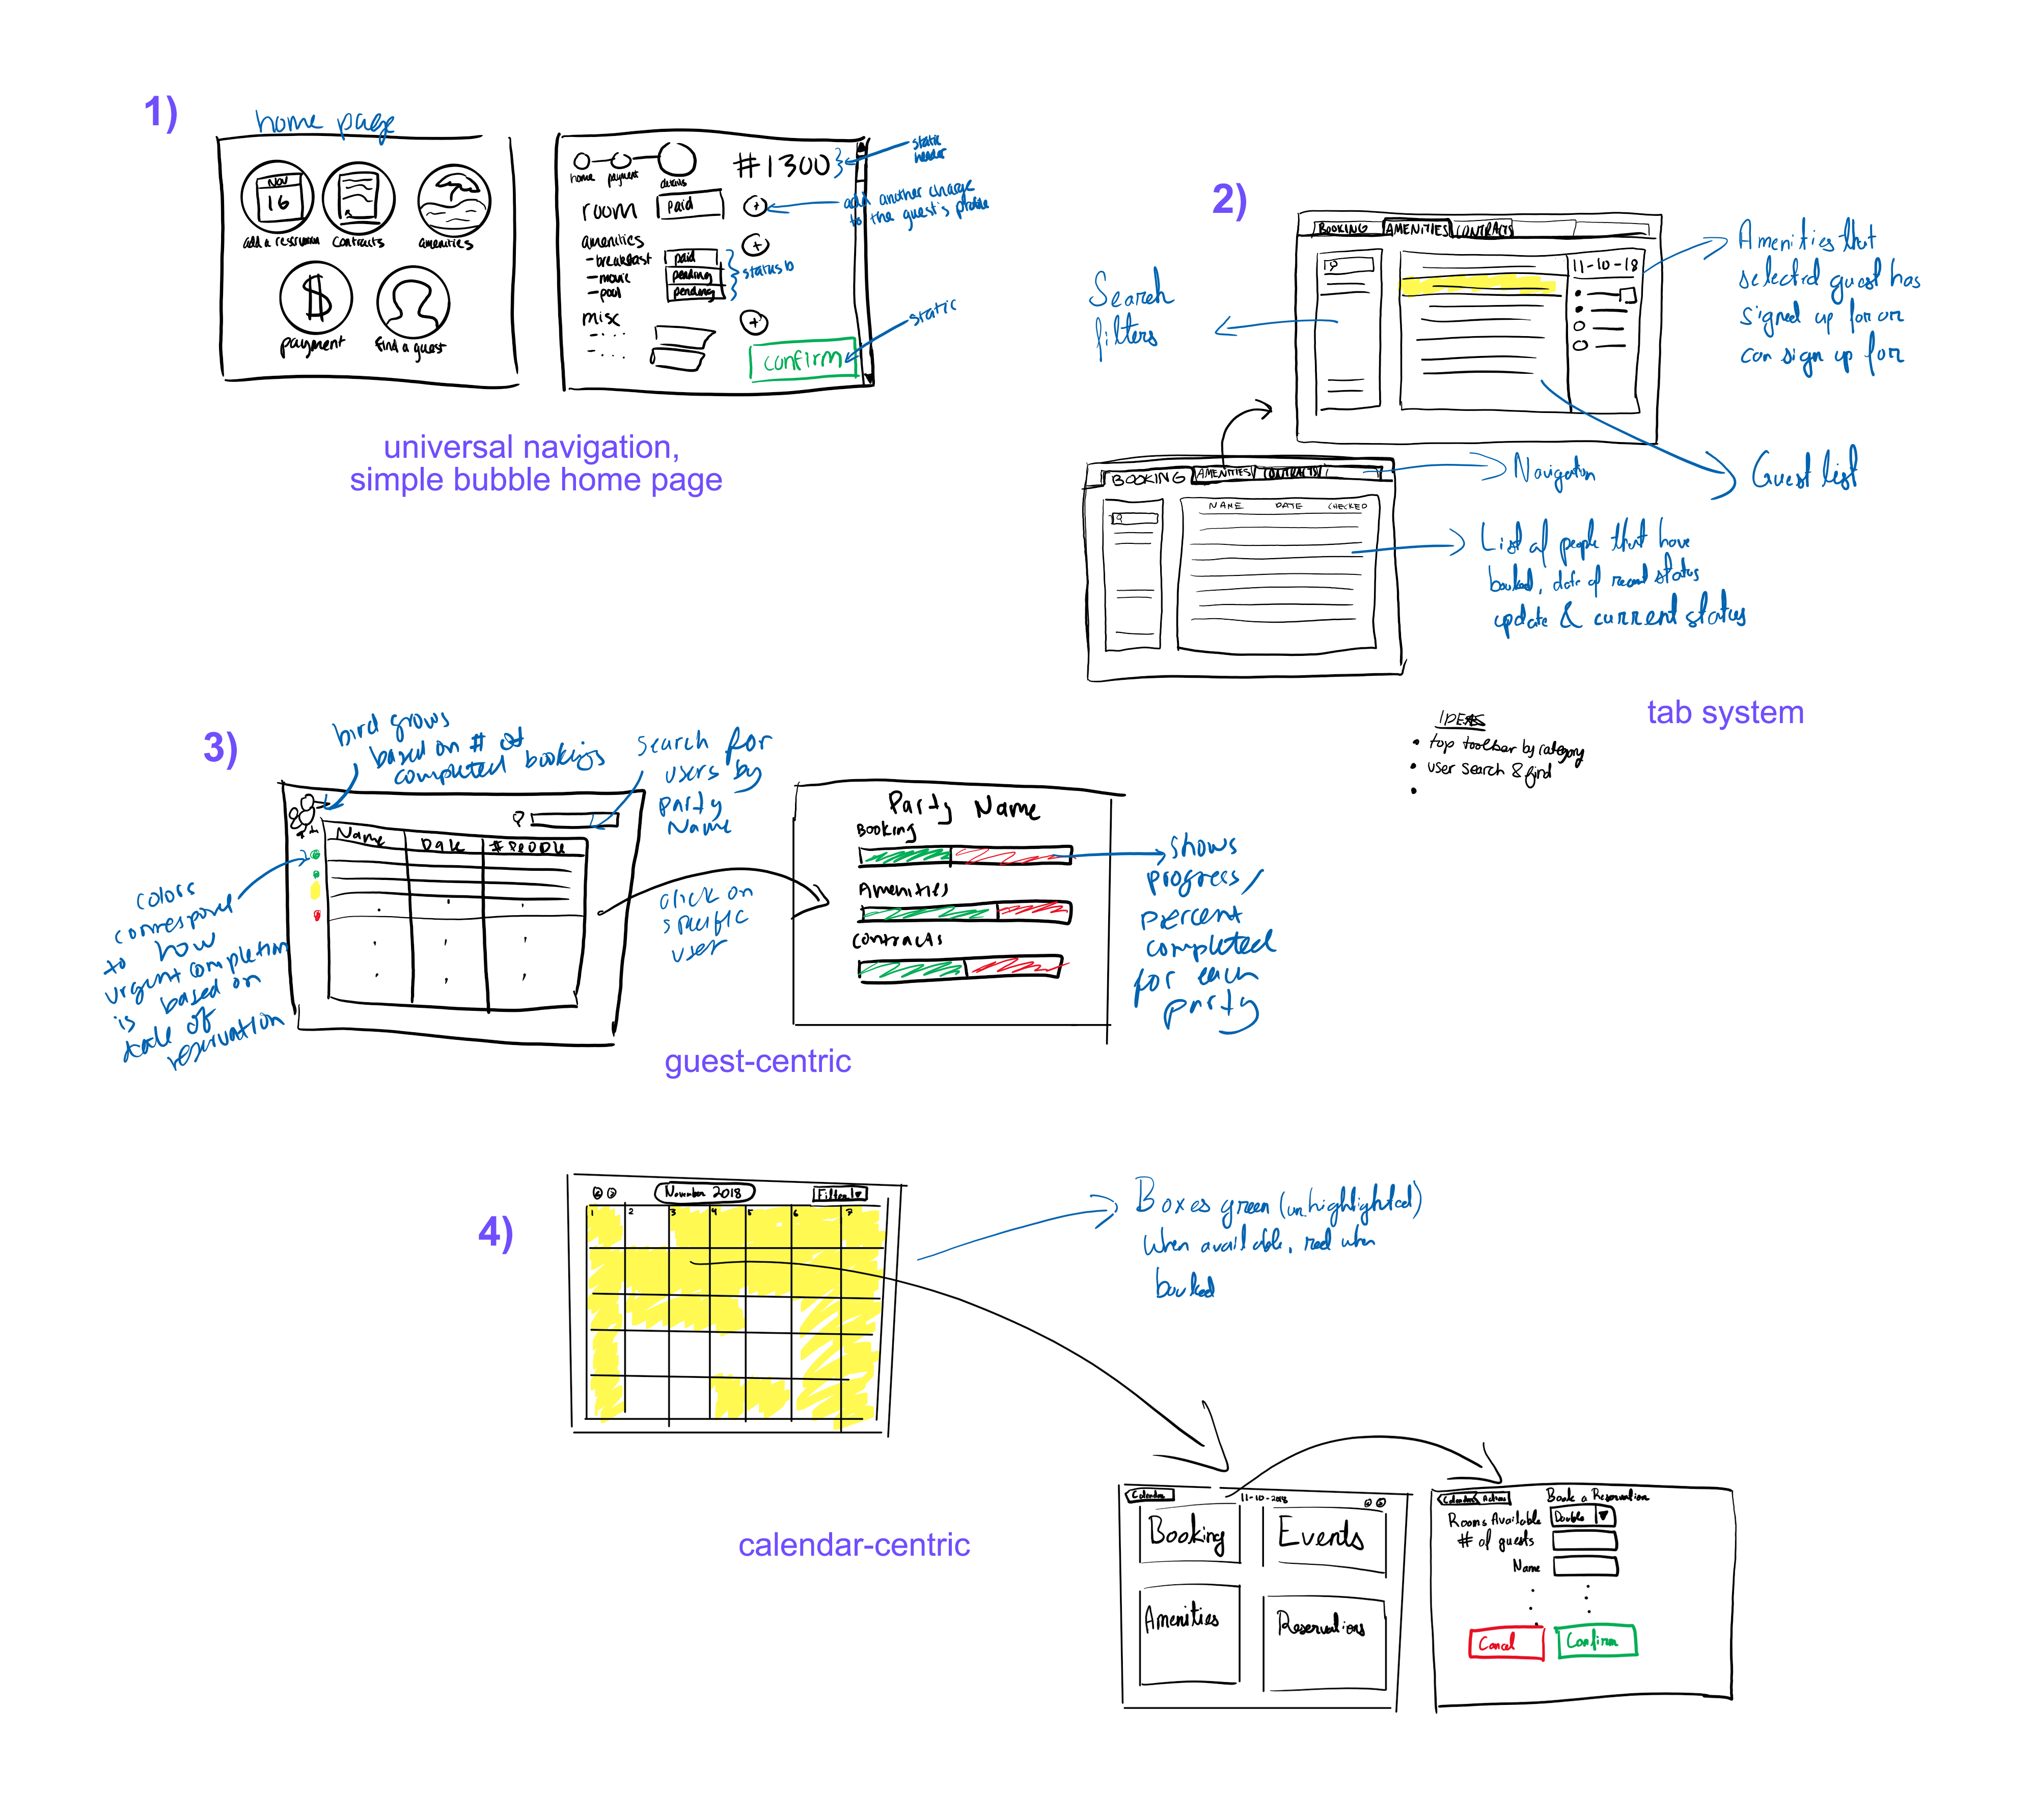 1)
home page
NOV
16
add a reservation
contracts
amenities
payment
find a guest
home
payment
details
#1300
static
header
room
paid
+
add another charge
to the guest's profile
amenities
+
- breakfast
paid
- movie
pending
- pool
pending
status
misc
+
- ...
- ...
static
confirm
universal navigation,
simple bubble home page
2)
BOOKING
AMENITIES
CONTRACTS
11-10-18
Search
filters
Amenities that
selected guest has
signed up for or
can sign up for
Guest list
BOOKING
AMENITIES
CONTRACTS
Navigation
NAME
DATE
CHECKED
List of people that have
booked, date of recent status
update & current status
tab system
IDEAS
• top toolbar by category
• user search & find
•
3)
bird grows
based on # of
completed bookings
search for
users by
party
Name
Name
Date
# PEOPLE
colors
correspond
to how
urgent completion
is based on
date of
reservation
click on
specific
user
Party Name
Booking
Amenities
Contracts
Shows
progress/
percent
completed
for each
party
guest-centric
4)
November 2018
Filter
1
2
3
4
5
6
7
Boxes green (unhighlighted)
when available, red when
booked
calendar-centric
Calendar
11-10-2018
Booking
Events
Amenities
Reservations
Calendar
Actions
Book a Reservation
Rooms Available
Double
# of guests
Name
Cancel
Confirm